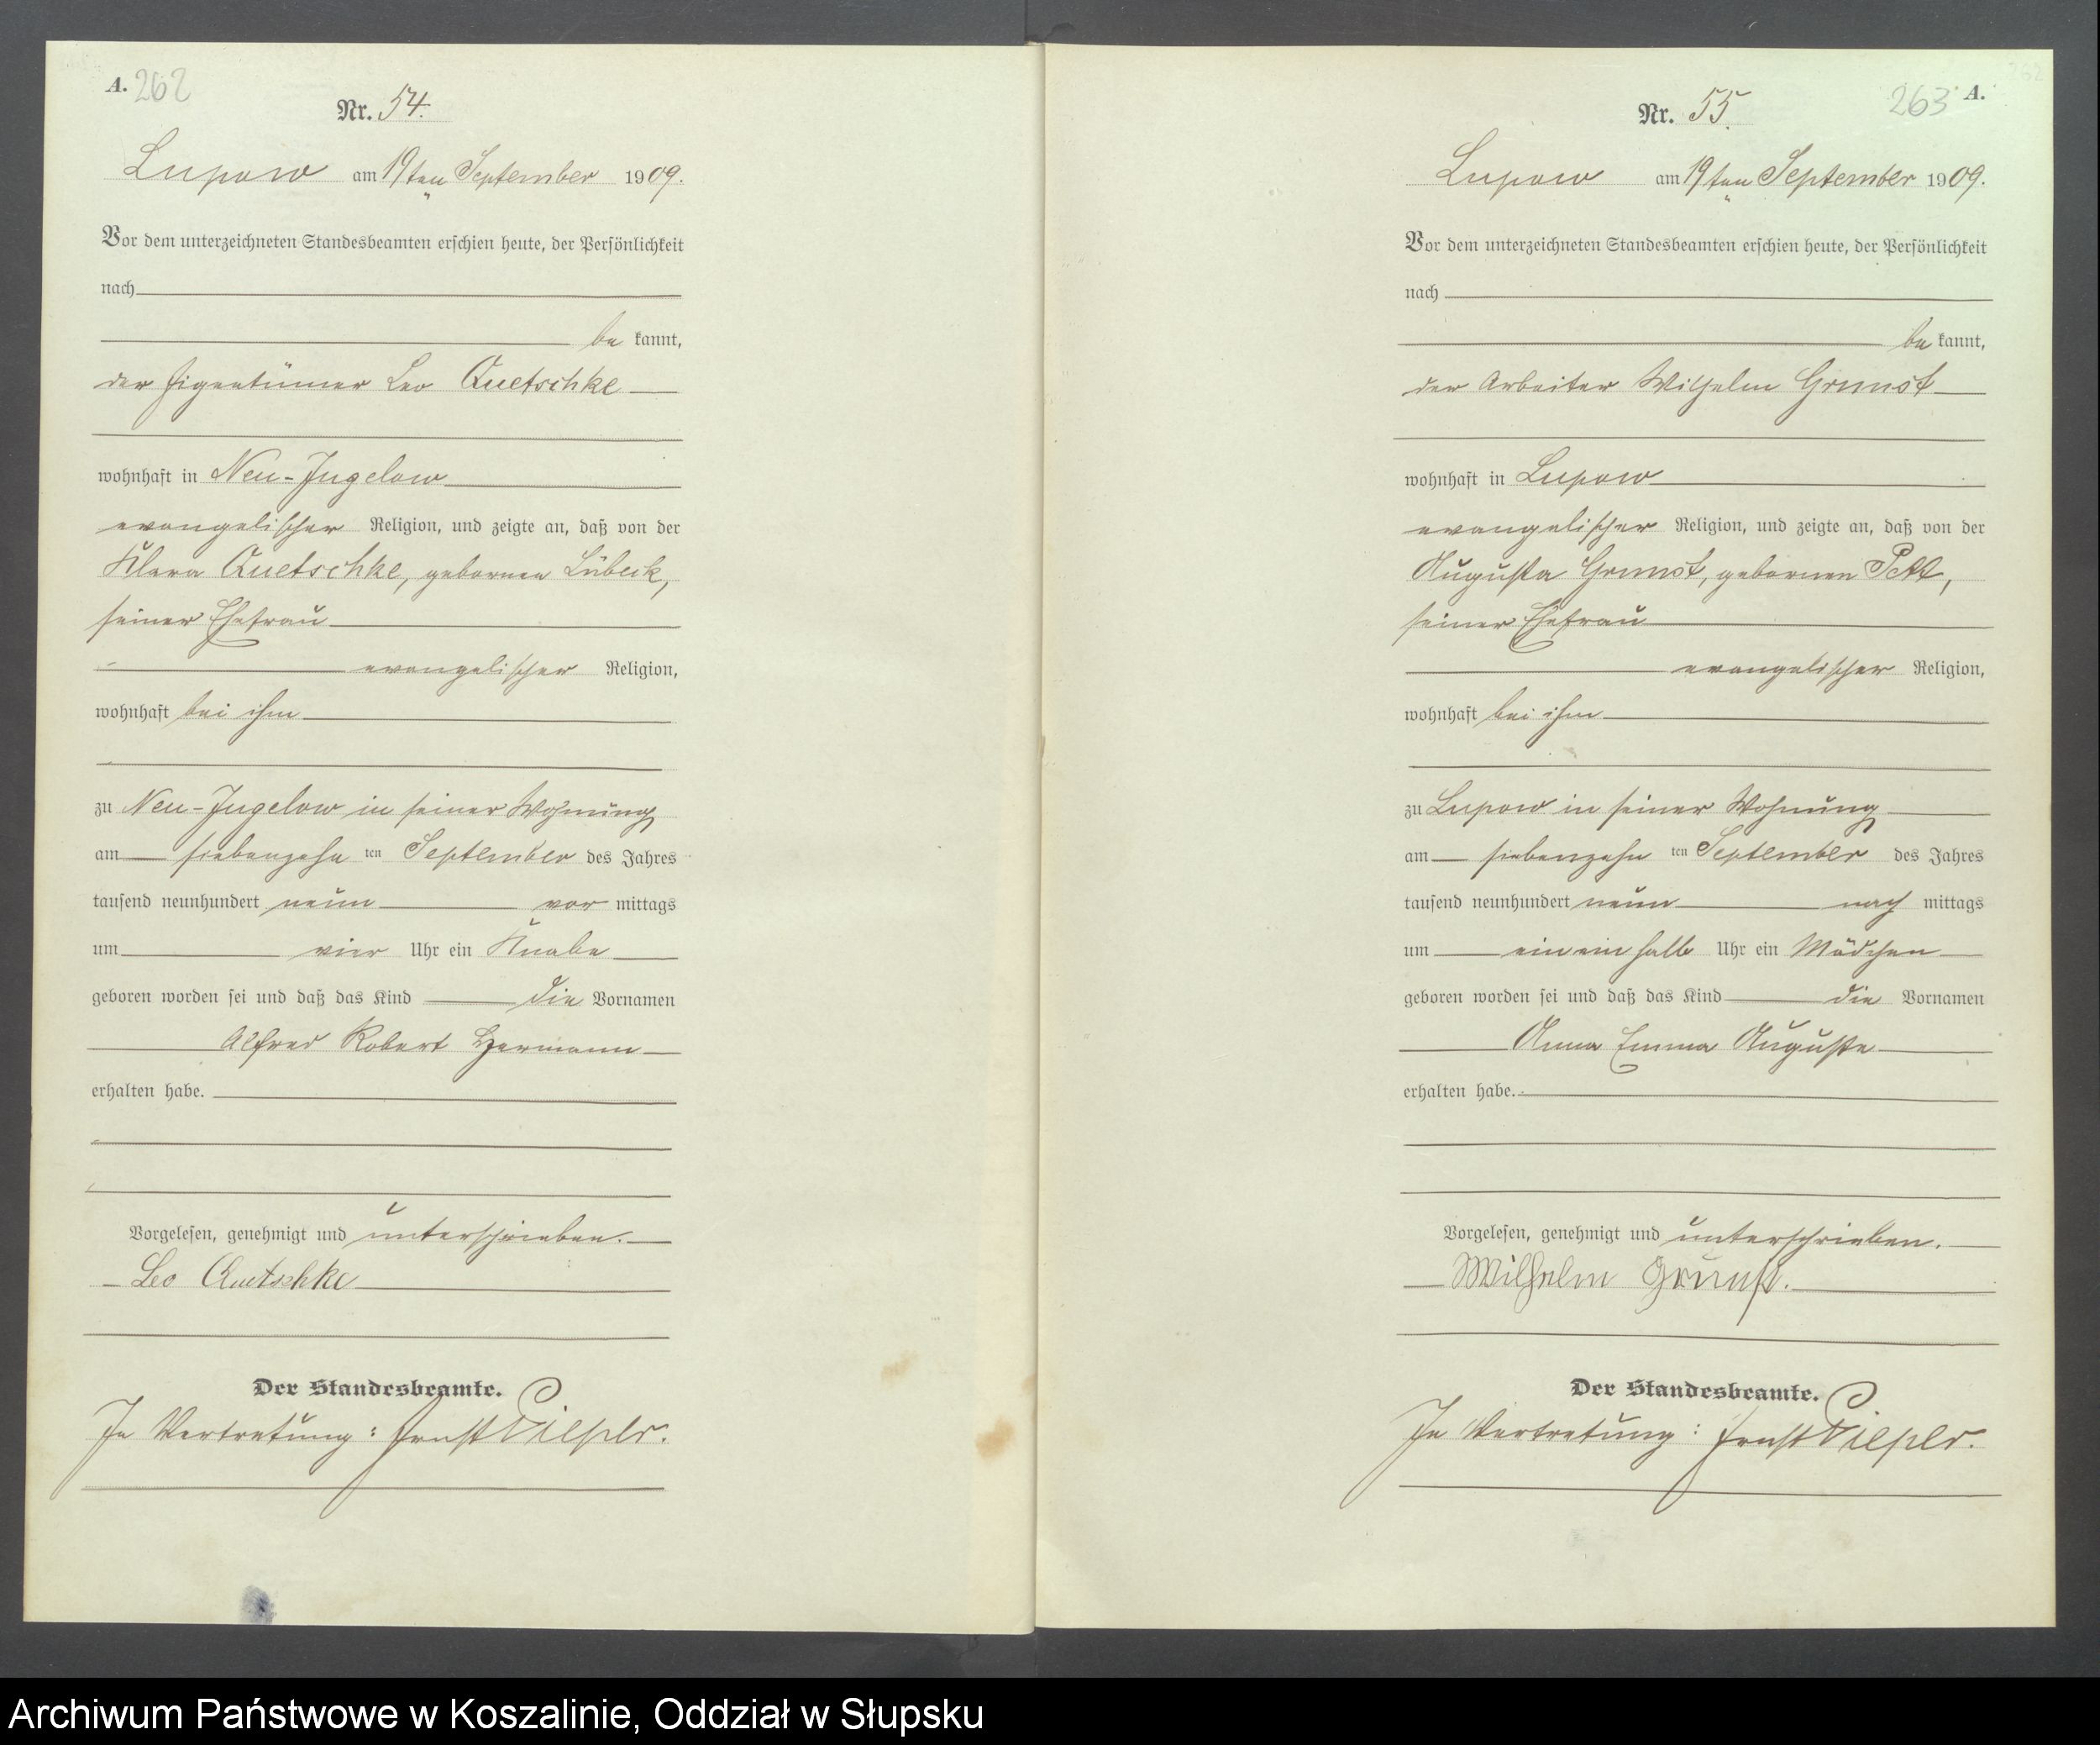 A. 262
Nr. 54.
Lupow am 19ten September 1909.
Vor dem unterzeichneten Standesbeamten erschien heute, der Persönlichkeit
nach
be kannt,
der Eigentümer Leo Quetschke
wohnhaft in Neu-Jugelow
evangelischer Religion, und zeigte an, daß von der
Klara Quetschke, geborenen Lübeck,
seiner Ehefrau
evangelischer Religion,
wohnhaft bei ihm
zu Neu-Jugelow in seiner Wohnung
am siebenzehn ten September des Jahres
tausend neunhundert neun vor mittags
um vier Uhr ein Knabe
geboren worden sei und daß das Kind die Vornamen
Alfred Robert Hermann
erhalten habe.
Vorgelesen, genehmigt und unterschrieben.
Leo Quetschke
Der Standesbeamte.
In Vertretung: Ernst
263 A.
Nr. 55.
Lupow am 19ten September 1909.
Vor dem unterzeichneten Standesbeamten erschien heute, der Persönlichkeit
nach
be kannt,
der Arbeiter Wilhelm Grunst
wohnhaft in Lupow
evangelischer Religion, und zeigte an, daß von der
Augusta Grunst, geborenen
seiner Ehefrau
evangelischer Religion,
wohnhaft bei ihm
zu Lupow in seiner Wohnung
am siebenzehn ten September des Jahres
tausend neunhundert neun nach mittags
um ein ein halb Uhr ein Mädchen
geboren worden sei und daß das Kind die Vornamen
Anna Emma Auguste
erhalten habe.
Vorgelesen, genehmigt und unterschrieben.
Wilhelm Grunst.
Der Standesbeamte.
In Vertretung: Ernst
Archiwum Państwowe w Koszalinie, Oddział w Słupsku